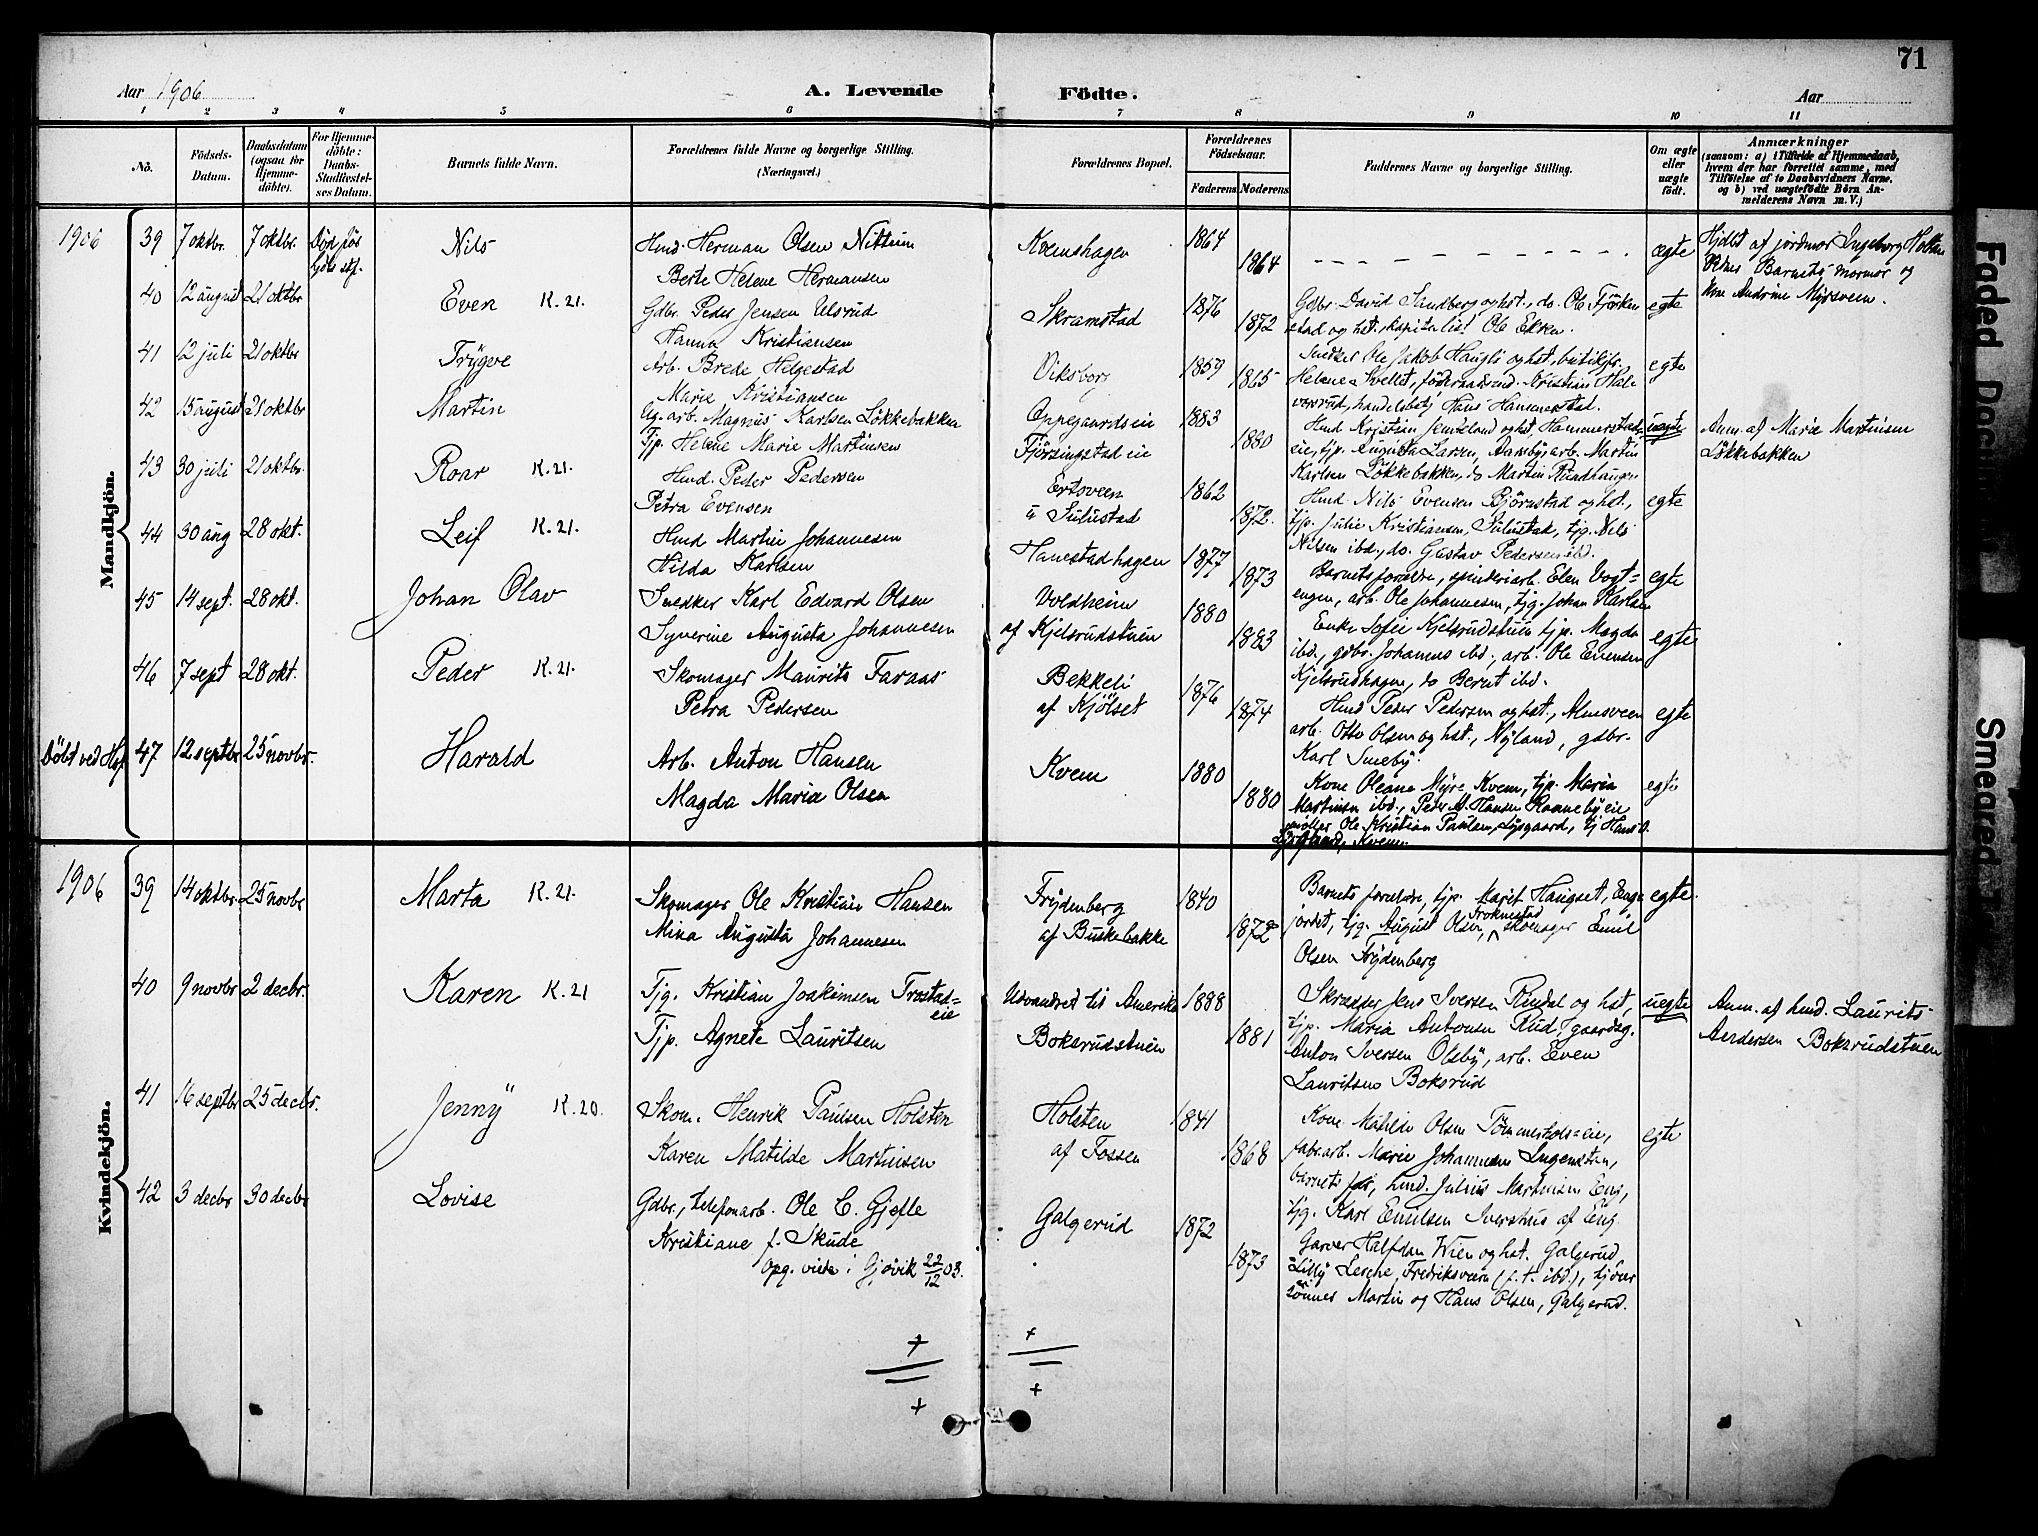 71
Aar 1906
A. Levende Födte.
Aar
1 2 3 4 5 6 7 8 9 10 11
No.
Födsels-Datum.
Daabsdatum (ogsaa for Hjemmedöbte).
For Hjemmedöbte: Daabs-Stadfæstelses Datum.
Barnets fulde Navn.
Forældrenes fulde Navne og borgerlige Stilling. (Næringsvei.)
Forældrenes Bopæl.
Forældrenes Födselsaar.
Faderens Moderens
Faddernes Navne og borgerlige Stilling.
Om ægte eller uægte födt.
Anmærkninger
(saasom: a) i Tilfælde af Hjemmedaab, hvem der har forrettet samme, med Tilföielse af to Daabsvidners Navne, og b) ved uægtefödte Börn Anmelderens Navn m. V.)
Mandkjön.
1906 39 7 oktbr. 7 oktbr. Död før Nils Hmd. Herman Olsen Nittum Kvemshagen 1864 ægte Hjdbt af jordmor Ingeborg
Berte Helene Hermansen 1864 Barnets mormor og
40 12 august 21 oktbr Even K. 21. Gdbr. Peder Jensen Ulsrud Skramstad 1876 Gdbr. David Sandberg og hst., do. Ole egte Kone Andrine Myrsveen.
Hanna Kristiansen 1872 stad og hst., kapitalist Ole Ekren.
41 12 juli 21 oktbr Trygve Arb. Brede Helgestad Viksborg 1859 Snedker Ole Jakob Haugli og hst., butikjfr. egte
Marie Kristiansen 1865 Helene Kvellet, föderaadsmd. Kristian
42 15 august 21 oktbr Martin Ug. arb. Magnus Karlsen Løkkebakken Oppegaardseie 1883 versrud, handelsbetj Hans Hammerstad. uægte Anm. af Marie Martinsen
Tjp. Helene Marie Martinsen Fjörsingstadeie 1880 Hmd Kristian og hst, Hammerstads Løkkebakken
43 30 juli 21 oktbr. Roar K. 21. Hmd. Peder Pedersen Ertsveen 1862 eie, tjp. Augusta Larsen, arb. Martin egte
Petra Evensen u Sulustad 1872. Karlsen Løkkebakken, do Martin Rundhaugen
44 30 aug 28 okt. Leif K. 21. Hmd Martin Johannesen Hanestadhagen 1877 Hmd. Nils Evensen Björnstad og hst., egte
Hilda Karlsen 1873 tjp. Julie Kristiansen, Sulustad, tjg. Nils
Nilsen ibd., do. Gustav Pedersen ibd.
45 14 sept. 28 okt. Johan Olav Snedker Karl Edvard Olsen Voldheim 1880 Barnets forældre, spinderiarb. Elen egte
Syverine Augusta Johannesen af Kjelsrudstuen 1883 engen, arb. Ole Johannesen, tjg. Johan Karlsen
46 7 sept 28 okt. Peder K. 21. Skomager Maurits Faraas Bekkeli 1876 Enke Sofie Kjelsrudstuen tjp. Magda egte
Petra Pedersen af Kjölset 1874 ibd., gdbr. Johannes ibd., arb. Ole Evensen
Kjelsrudhagen, do Bernt ibd.
Döbt ved Hof 47 12 septbr 25 novbr. Harald Arb. Anton Hansen Kvem 1880 Hmd Peder Pedersen og hst., Almsveen egte
Magda Marie Olsen 1880 arb. Otto Olsen og hst., Nyland, gdbr.
Karl Smeby.
Kone Oleane Myre Kvem, tjp. Maria
Martinsen ibd., Peder A. Hansen Rannebyeie
møller Ole Kristian Paulsen, Lysgaard, tj Hans O.
Kvem.
Kvindekjön.
1906 39 14 oktbr. 25 novbr Marta K. 21. Skomager Ole Kristian Hansen Frydenberg 1840 Barnets forældre, tjp. Marit Haugset, Enge egte.
Mina Augusta Johannesen af Buskebakke 1872 jordet, tjg. August Olsen, skomager Emil
Olsen Frydenberg
40 9 novbr 2 decbr. Karen K. 21 Tjg. Kristian Joakimsen Trostad=eie Udvandret til Amerika 1888 Skræpper Jens Iversen Rindal og hst, uegte Anm. af hmd. Laurits
Tjp. Agnete Lauritsen Boksrudstuen 1881 tjp. Maria Antonsen Rud, gaardsg. Andersen Boksrudstuen
Anton Iversen Olsby, arb. Even
Lauritsen Boksrud
41 16 septbr 25 decbr. Jenny K. 20. Skom. Henrik Paulsen Holsten Holsten 1841 Kone Matilde Olsen egte
Karen Matilde Martinsen af Fossen 1868 fabr.arb. Marie Johannesen
barnets far, hmd. Julius Martinsen Eng,
tjg. Karl Emilsen Iverstuen af Eng.
42 3 decbr 30 decbr Lovise Gdbr., telefonarb. Ole C. Gjefle Galgerud 1872 Garver Halfdan Wien og hst. Galgerud,
Kristiane f. Skude 1873 Lilly Lerche, Fredriksveien (f. t. ibd.),
Opg. viede i Gjøvik 22/12 03. Martin og Hans Olsen, Galgerud.
Faded Document
Smeared